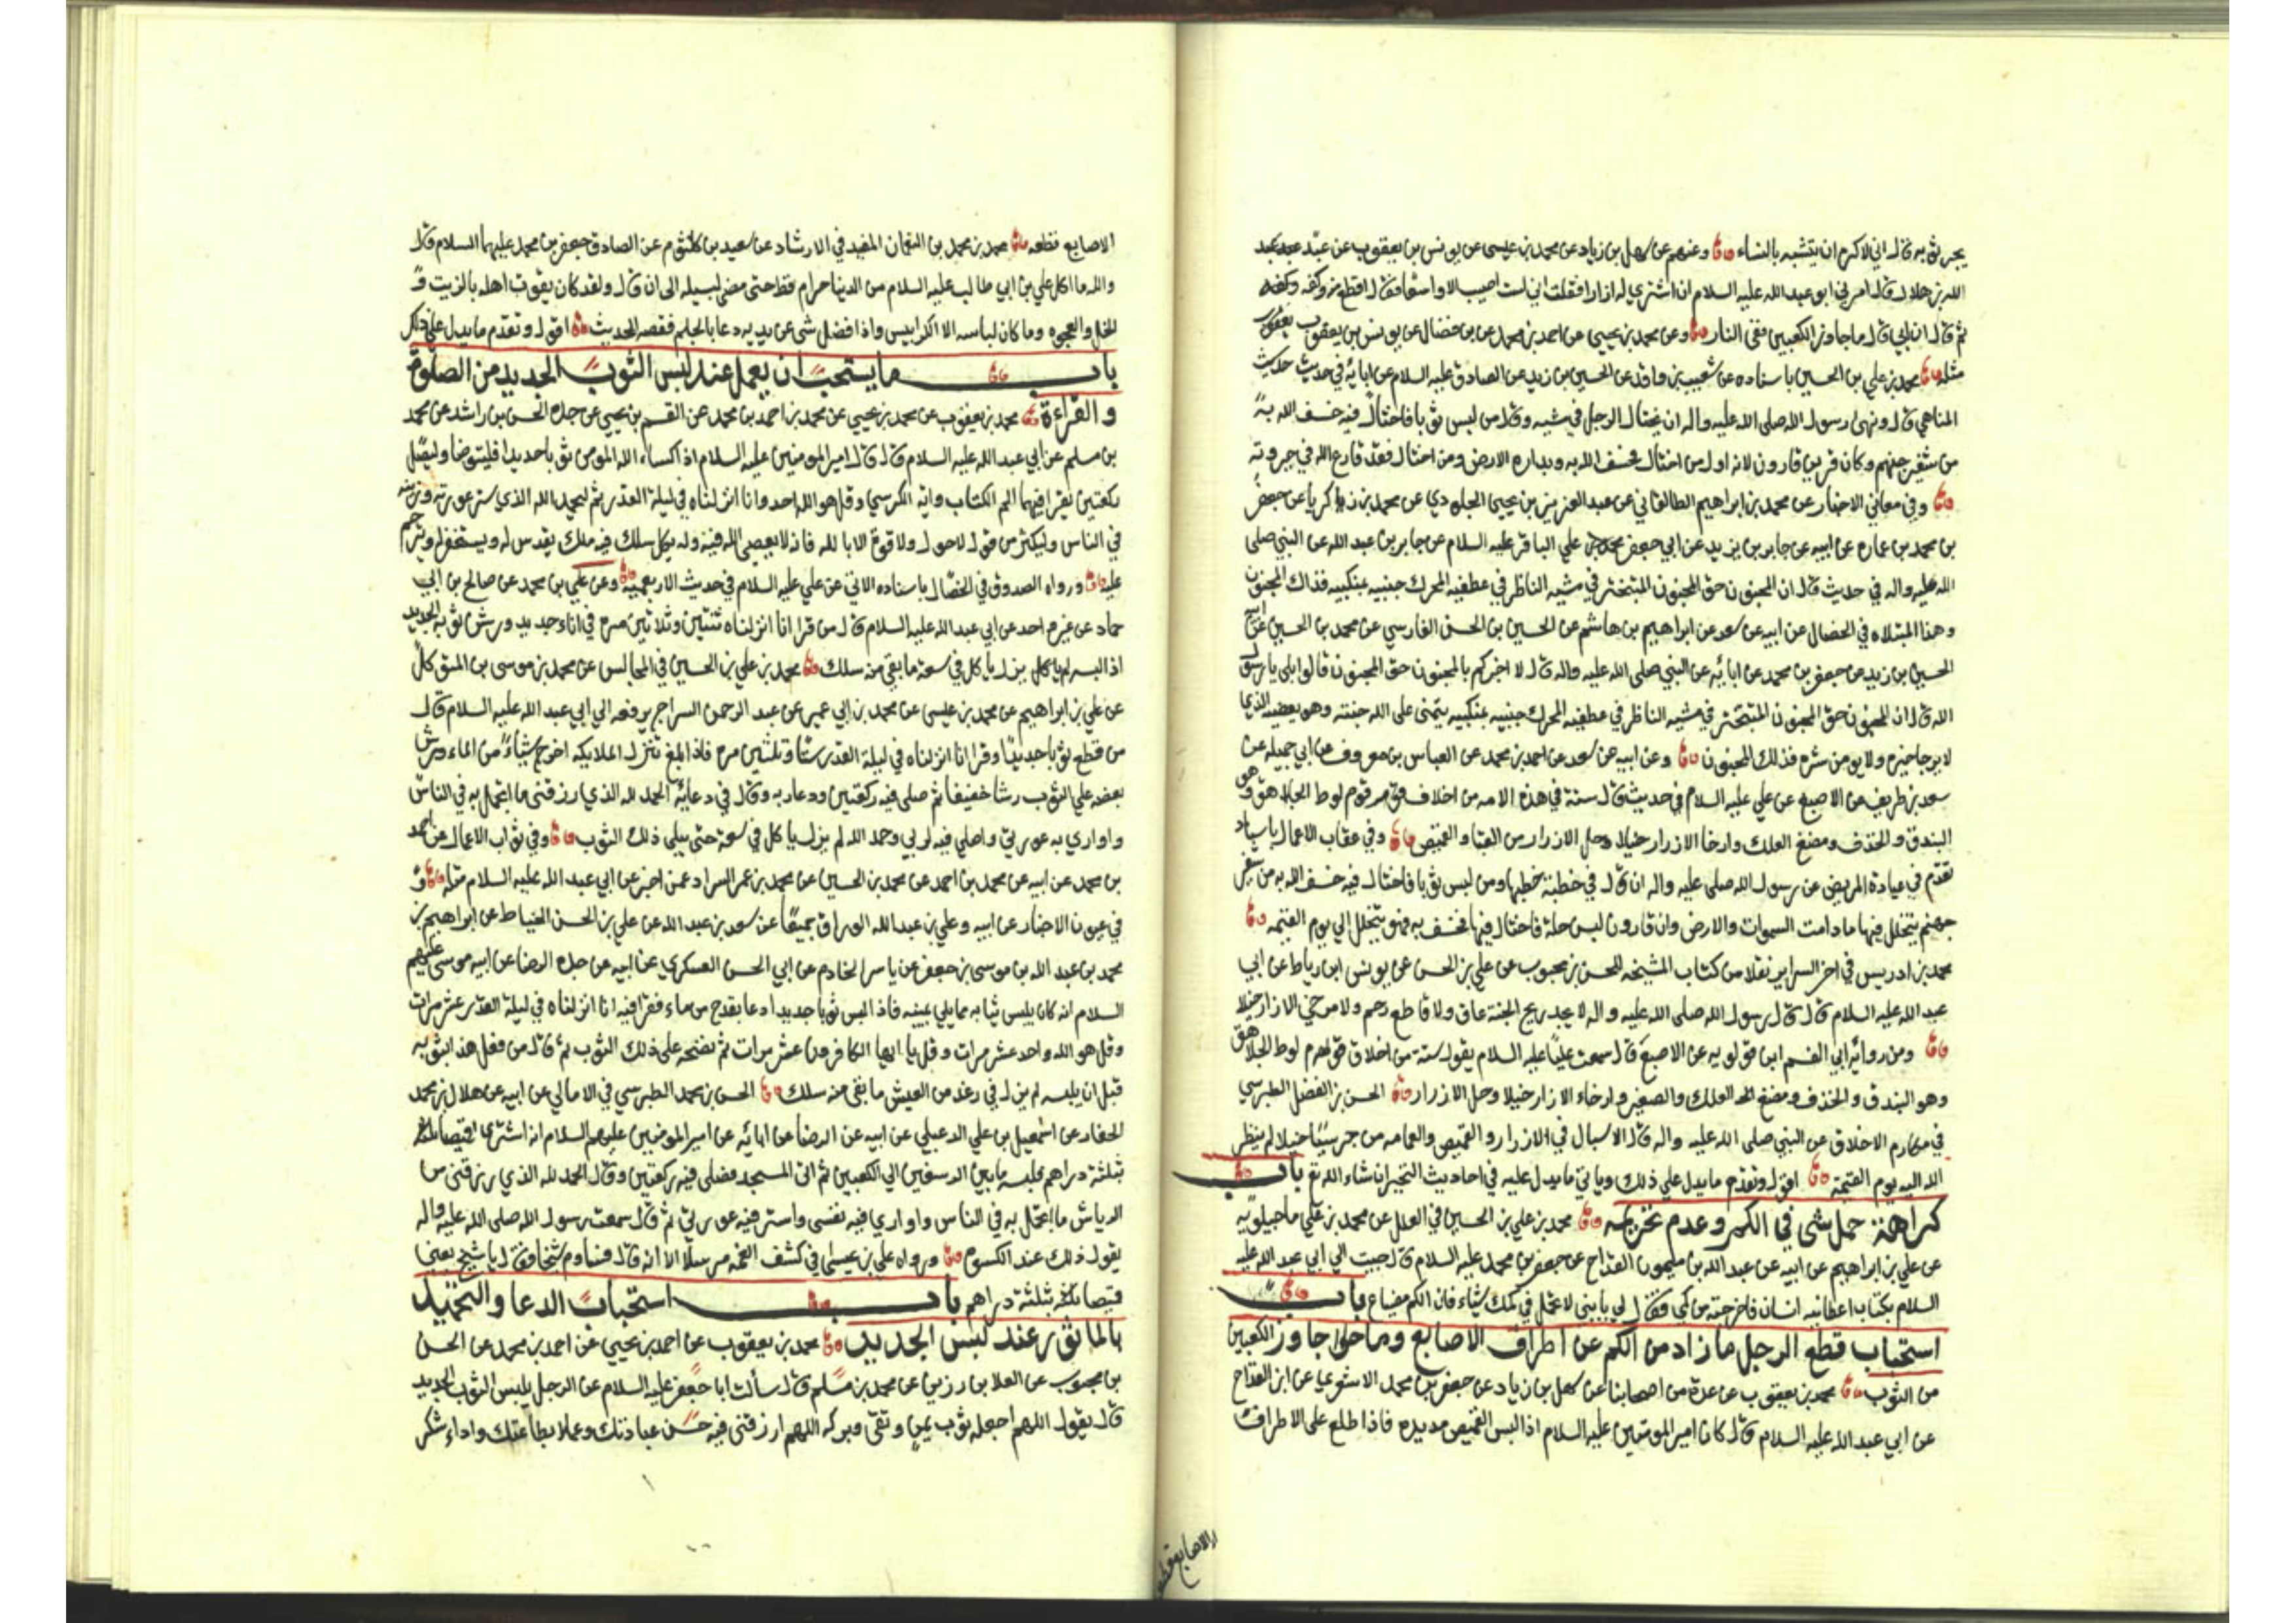 يجر ثوبه قال اني لاكره ان يتشبه بالنساء وعنهم عن سهل بن زياد عن محمد بن عيسى عن يونس بن يعقوب عن عبد
الله بن هلال قال امرني ابو عبد الله عليه السلام ان اشتري له ازارا فقلت اني لست اصيب الا واسعا فقال اقطع منه وكفه
ثم قال ان ابي قال ما جاوز الكعبين ففي النار وعن محمد بن يحيى عن احمد بن محمد عن بن فضال عن يونس بن يعقوب
مثله محمد بن علي بن الحسين باسناده عن شعيب بن واقد عن الحسين بن زيد عن الصادق عليه السلام عن ابائه في حديث
المناهي قال ونهى رسول الله صلى الله عليه واله ان يختال الرجل في مشيه وقال من لبس ثوبا فاختال فيه خسف الله به
من شفير جهنم وكان قرين قارون لانه اول من اختال فخسف الله به وبداره الارض ومن اختال فقد قارع الله في جبروته
وفي معاني الاخبار عن محمد بن ابراهيم الطالقاني عن عبد العزيز بن يحيى الجلودي عن محمد بن زكريا عن جعفر
بن محمد بن عماره عن ابيه عن جابر بن يزيد عن ابي جعفر محمد بن علي الباقر عليه السلام عن جابر بن عبد الله عن النبي صلى
الله عليه واله في حديث قال ان المجنون حق المجنون المتبختر في مشيه الناظر في عطفيه المحرك جنبيه بمنكبيه فذاك المجنون
وهذا المبتلاه في الخصال عن ابيه عن سعد عن ابراهيم بن هاشم عن الحسين بن الحسن الفارسي عن محمد بن الحسين عن
الحسين بن زيد عن جعفر بن محمد عن ابائه عن النبي صلى الله عليه واله قال لا اخبركم بالمجنون حق المجنون قالوا بلى يا رسول
الله قال ان المجنون حق المجنون المتبختر في مشيه الناظر في عطفيه المحرك جنبيه بمنكبيه يتمنى على الله جنته وهو يعصيه الذي
لا يرجا خيره ولا يومن شره فذلك المجنون وعن ابيه عن سعد عن احمد بن محمد عن العباس بن معروف عن ابي جميله عن
سعد بن طريف عن الاصبغ عن علي عليه السلام في حديث قال ستة في هذه الامه من اخلاف قوم لوط الجلاهق وهو
البندق والخذف ومضغ العلك وارخا الازرار خيلا وحل الازرار من القبا والقميص وفي عقاب الاعمال باسناد
تقدم في عيادة المريض عن رسول الله صلى عليه واله ان قال في خطبة خطبها ومن لبس ثوبا فاختال فيه خسف الله به من شفير
جهنم يتخلل فيها مادامت السموات والارض وان قارون لبس حلة فاختال فيها فخسف به فهو يتخلل الى يوم القيمه
محمد بن ادريس في اخر السراير نقلا من كتاب المشيخه للحسن بن محبوب عن علي بن الحسن عن يونس ابن رباط عن ابي
عبد الله عليه السلام قال قال رسول الله صلى الله عليه واله لا يجد ريح الجنة عاق ولا قاطع رحم ولا مرخي الازار خيلا
ومن روائه ابي القسم ابن قولويه عن الاصبغ قال سمعت عليا عليه السلام يقول ستة من اخلاق قوم لوط الجلاهق
وهو البندق والخذف ومضغ العلك والصفير وارخاء الازار خيلا وحل الازرار الحسن بن الفضل الطبرسي
في مكارم الاخلاق عن النبي صلى الله عليه واله قال الاسبال في الازار والقميص والعمامه من جر شيئا خيلا لم ينظر
الله اليه يوم القيمة اقول وتقدم ما يدل علي ذلك وياتي ما يدل عليه في احاديث التخير ان شاء الله تع باب
كراهة حمل شي في الكم وعدم تحريمه محمد بن علي بن الحسين في العلل عن محمد بن علي ماجيلويه
عن علي بن ابراهيم عن ابيه عن عبد الله بن ميمون القداح عن جعفر بن محمد عليه السلام قال جيت الي ابي عبد الله عليه
السلام بكتاب اعطانيه انسان فاخرجته من كمي فقال لي يا بني لا تحمل في كمك شياء فان الكم مضياع باب
استحباب قطع الرجل ما زاد من الكم عن اطراف الاصابع وما جاوز الكعبين
من الثوب محمد بن يعقوب عن عدة من اصحابنا عن سهل بن زياد عن جعفر بن محمد الاشعري عن ابن القداح
عن ابي عبد الله عليه السلام قال كان امير المومنين عليه السلام اذا لبس القميص مد يده فاذا طلع على الاطراف
الاصابع قطعه
الاصابع قطعه محمد بن محمد بن النعمان المفيد في الارشاد عن سعيد بن كلثوم عن الصادق جعفر بن محمد عليهما السلام قال
والله ما اكل علي بن ابي طالب عليه السلام من الدينا حرام قط حتى مضى لسبيله الى ان قال ولقد كان يقوت اهله بالزيت و
الخل والعجوه وما كان لباسه الا الكرابيس واذا افضل شي عن يديه دعا بالجلم فقصه الحديث اقول وتقدم ما يدل على ذلك
باب ما يستحب ان يعمل عند لبس الثوب الجديد من الصلوة
والقراءة محمد بن يعقوب عن محمد بن يحيى عن محمد بن احمد بن محمد عن القسم بن يحيى عن جده الحسن بن راشد عن محمد
بن مسلم عن ابي عبد الله عليه السلام قال قال امير المومنين عليه السلام اذا كساء الله المومن ثوبا جديدا فليتوضا وليصل
ركعتين يقرا فيهما الم الكتاب واية الكرسي وقل هو الله احد وانا انزلناه في ليلة القدر ثم ليحمد الله الذي ستر عورته وزينه
في الناس وليكثر من قول لاحول ولا قوة الا بالله فانه لا يعصي الله فيه وله بكل سلك فيه ملك يقدس له ويستغفر له ويترحم
عليه ورواه الصدوق في الخصال باسناده الاتي عن علي عليه السلام في حديث الاربعمية وعن علي بن محمد عن صالح بن ابي
حماد عن غير احد عن ابي عبد الله عليه السلام قال من قرا انا انزلناه ثنتين وثلاثين مرة في اناء جديد ورش ثوبه الجديد
اذا لبسه لم ياكل يزل ياكل في سعة ما بقي منه سلك محمد بن علي بن الحسين في المجالس عن محمد بن موسى بن المتوكل
عن علي بن ابراهيم عن محمد بن عيسى عن محمد بن ابي عمير عن عبد الرحمن السراج يرفعه الي ابي عبد الله عليه السلام قال
من قطع ثوبا جديدا وقرا انا انزلناه في ليلة القدر ستا وثلثين مرة فاذا بلغ تنزل الملايكه اخرج شياء من الماء ورش
بعضه علي الثوب رشا خفيفا ثم صلى فيه ركعتين ودعا ربه وقال في دعائه الحمد لله الذي رزقني ما اتجمل به في الناس
واواري به عورتي واصلي فيه لربي وحمد الله لم يزل ياكل في سعة حتى يبلي ذلك الثوب وفي ثواب الاعمال عن احمد
بن محمد عن ابيه عن محمد بن احمد عن محمد بن الحسين عن محمد بن عمر السراد عمن اخبر عن ابي عبد الله عليه السلام مثله و
في عيون الاخبار عن ابيه وعلي بن عبد الله الوراق جميعا عن سعد بن عبد الله عن علي بن الحسن الخياط عن ابراهيم بن
محمد بن عبد الله بن موسى بن جعفر عن ياسر الخادم عن ابي الحسن العسكري عن ابيه عن جده الرضا عن ابيه موسى عليهم
السلام انه كان يلبس ثيابه مما يلي يمينه فاذا لبس ثوبا جديدا دعا بقدح من ماء فقرا فيه انا انزلناه في ليلة القدر عشر مرات
وقل هو الله واحد عشر مرات وقل يا ايها الكافرون عشر مرات ثم نضحه على ذلك الثوب ثم قال من فعل هذا بثوبه
قبل ان يلبسه لم يزل في رغد من العيش ما بقى منه سلك الحسن بن محمد الطبرسي في الامالي عن ابيه عن هلال بن محمد
الحفار عن اسمعيل بن علي الدعبلي عن ابيه عن الرضا عن ابائه عن امير المومنين عليهم السلام انه اشترى قميصا
بثلثة دراهم فلبسه ما بين الرسغين الي الكعبين ثم اتى المسجد فصلى فيه ركعتين وقال الحمد لله الذي رزقني من
الرياش ما اتجمل به في الناس واواري فيه نفسي واستر فيه عورتي ثم قال سمعت رسول الله صلى الله عليه واله
يقول ذلك عند الكسوه ورواه علي بن عيسى في كشف الغمه مرسلا الا انه قال فساوم شيخا وقال يا شيخ بعني
قميصا بثلثة دراهم باب استحباب الدعا والتحميد
بالماثور عند لبس الجديد محمد بن يعقوب عن احمد بن يحيي عن احمد بن محمد عن الحسن
بن محبوب عن العلا بن رزين عن محمد بن مسلم قال سألت ابا جعفر عليه السلام عن الرجل يلبس الثوب الجديد
قال يقول اللهم اجعله ثوب يمن وتقى وبركه اللهم ارزقني فيه حسن عبادتك وعملا بطاعتك واداء شكر